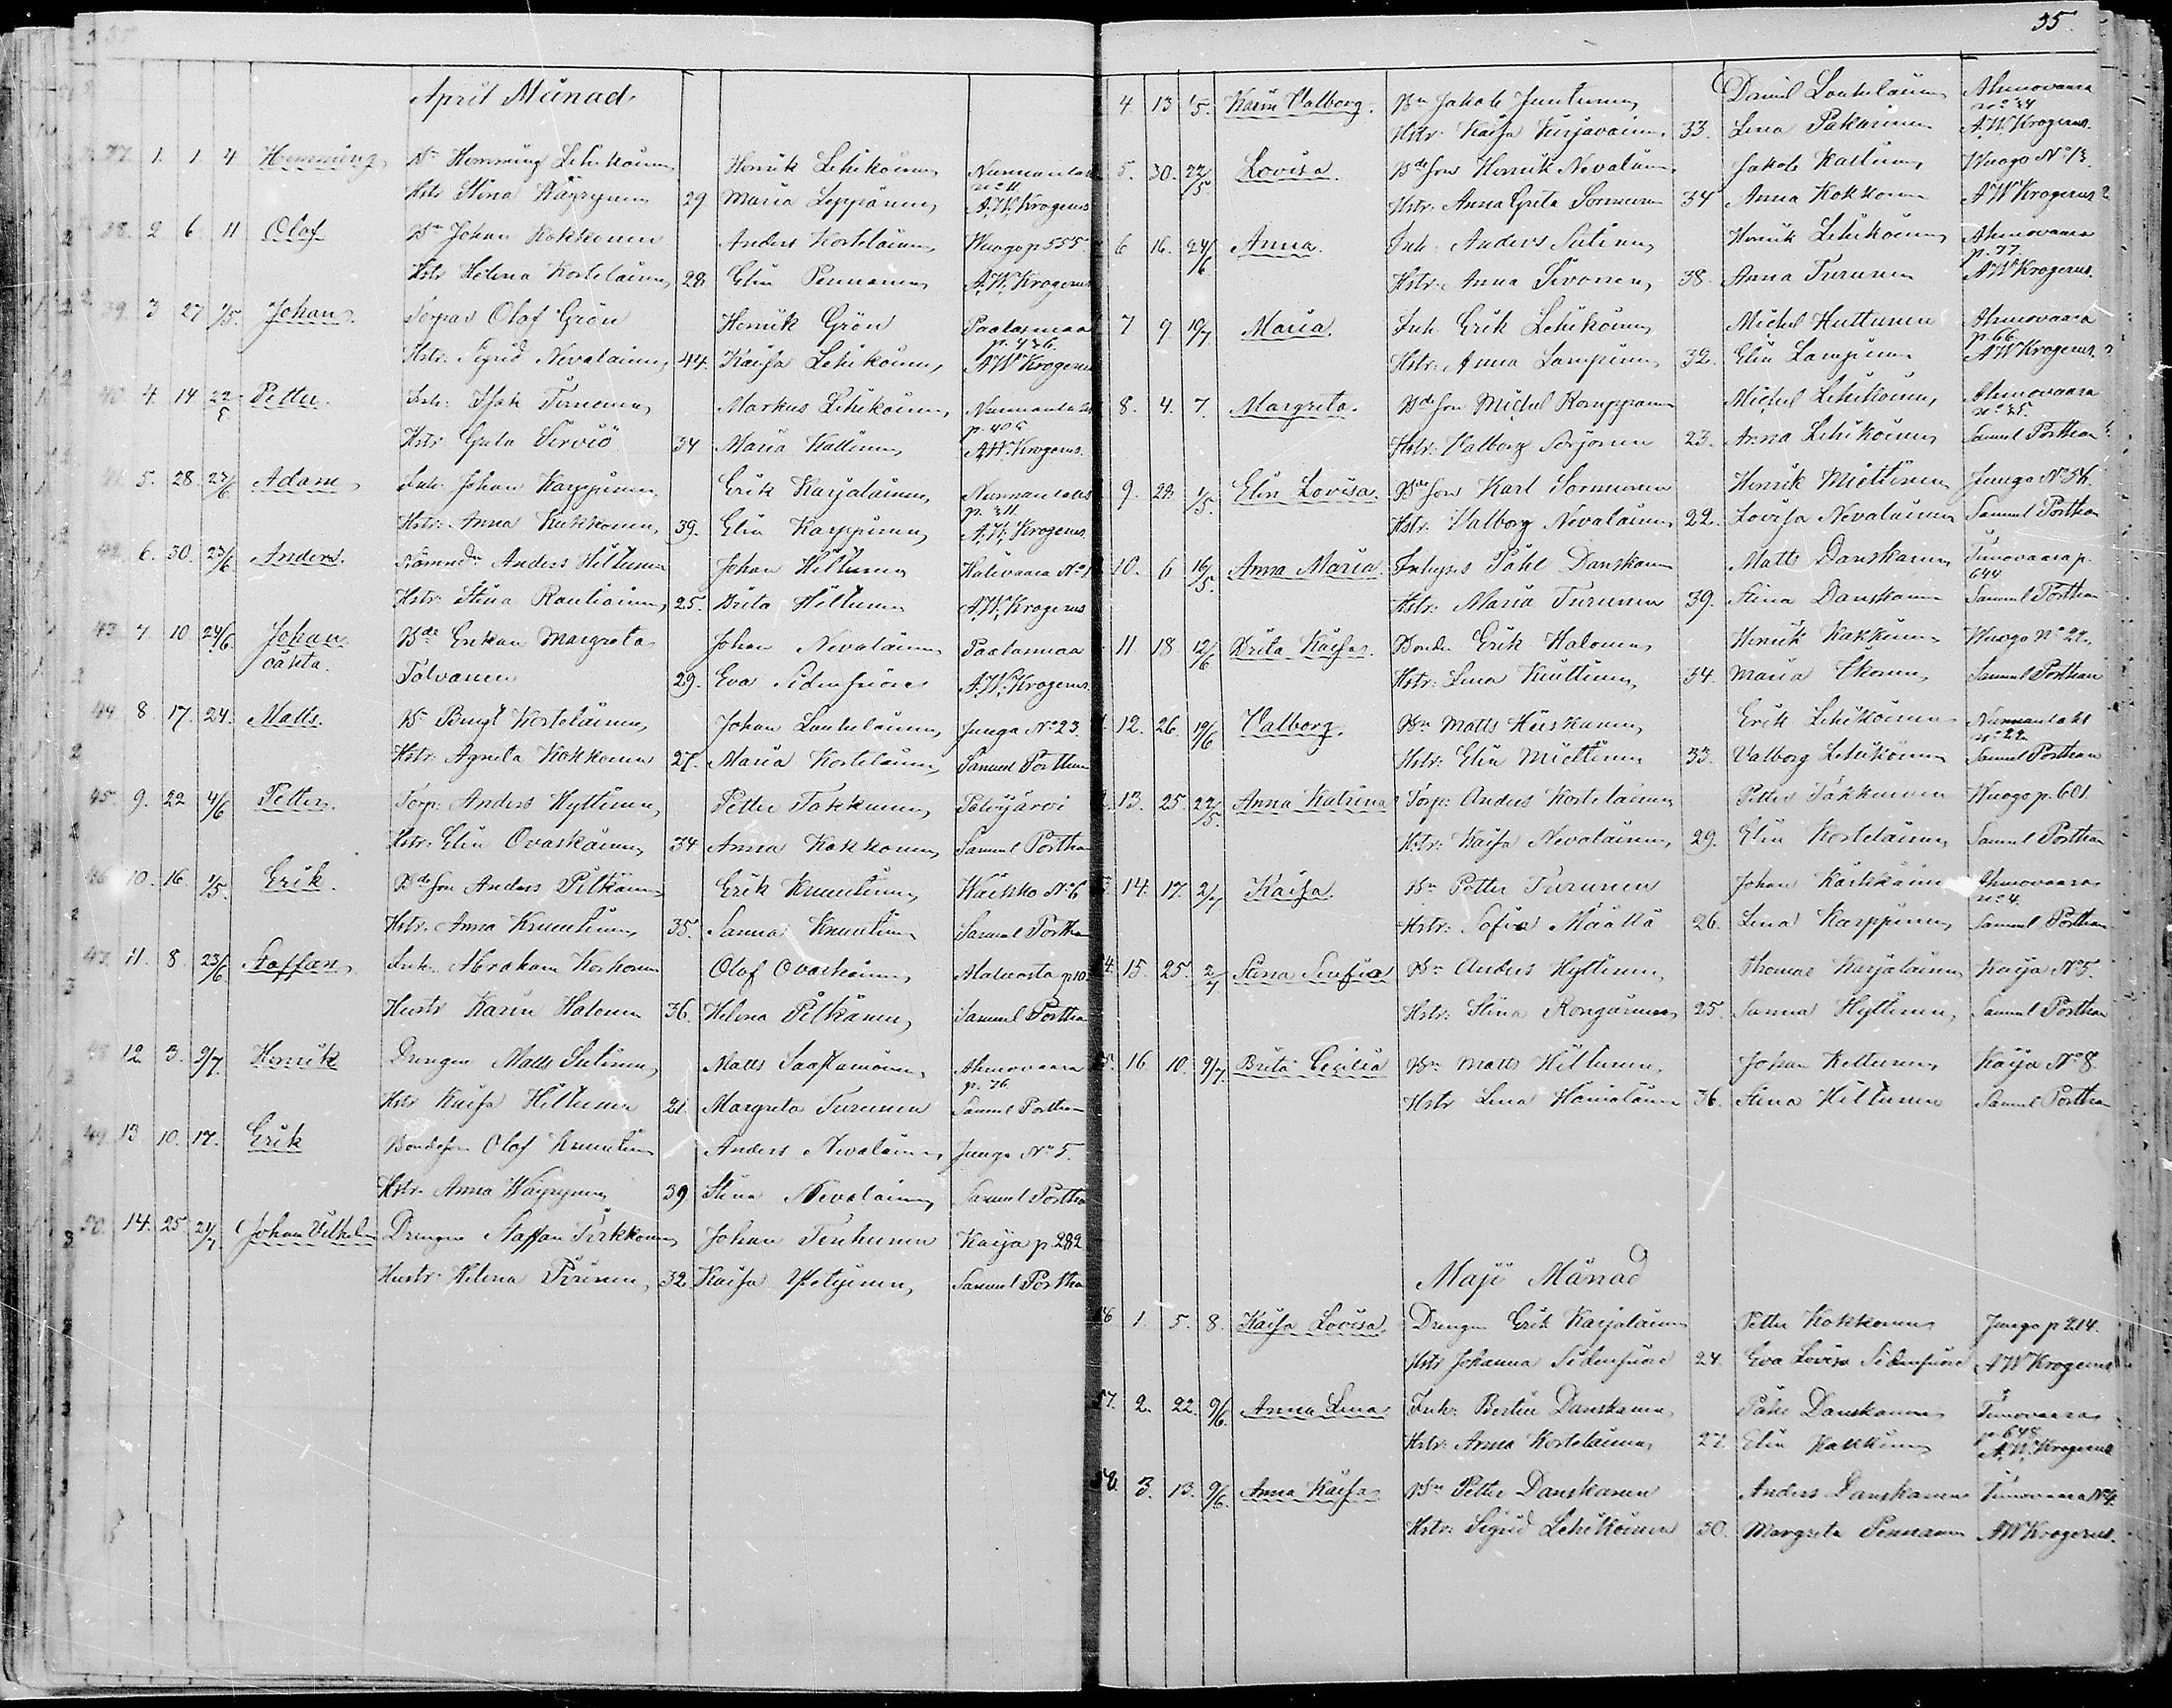 35.
April Månad
37. 1. 1. 4 Hemming Bn Hemming Lehikoinen Henrik Lehikoinen Nurmenlaks
no 11
Hstr Stina Wäyrynen 29 Maria Leppänen A.W. Krogerus
38. 2 6. 11 Olof Bn Johan Kokkonen Anders Kortelainen Wuogo p 555
Hstr Helena Kortelainen 28 Elin Pennanen A.W. Krogerus
39. 3 27 1/5. Johan Torpar Olof Grön Henrik Grön Paalasmaa
p. 436.
Hstr. Sigrid Nevalainen 44. Kaisa Lehikoinen A.W. Krogerus
40. 4. 14 22/5 Petter Inh. Isak Markus Lehikoinen
Hstr Greta Serviö 34 Maria A.W. Krogerus
41. 5. 28. 27/6 Adam Inh. Johan Karppinen Erik Karjalainen
Hstr. Anna Kukkonen 39. Elin Karppinen A.W. Krogerus
42. 6. 30. 23/6 Anders. Anders Hiltunen Johan Hiltunen
Hstr. Stina Rautiainen 25. Brita Hiltunen A.W. Krogerus
43. 7 10 24/6 Johan Bde Enkan Margreta Johan Nevalainen Paalasmaa
oäkta. Tolvanen 29. Eva Sidensnöre A.W. Krogerus
44. 8. 17. 24. Matts. Bn Bengt Kortelainen Johan Juuga No 23.
Hstr. Agneta Kokkonen 27. Maria Kortelainen Samuel Porthan
45. 9. 22 4/6 Petter. Torp. Anders Hyttinen Petter Polvijärvi
Hstr. Elin Ovaskainen 34 Anna Kokkonen Samuel Porthan
46. 10. 16. 1/5. Erik. Bdeson Anders Pitkänen Erik Knuutinen No 6
Hstr. Anna Knuutinen 35. Sanna Knuutinen Samuel Porthan
47. 11. 8. 23/6 Staffan Inh. Abraham Korhonen Olof Ovaskainen
Hustr Karin Halonen 36. Helena Pitkänen Samuel Porthan
48. 12 3. 9/7. Henrik Drengen Matts Sutinen Matts Saastamoinen Ahmovaara
p. 76
Hstr Kaisa Hiltunen 21. Margreta Turunen Samuel Porthan
49. 13. 10. 17. Erik Bondeson Olof Knuutinen Anders Nevalainen Juuga No 5.
Hstr. Anna Wäyrynen 39 Stina Nevalainen Samuel Porthan
50. 14. 25. 21/7 Johan Vilhelm Drengen Staffan Johan Tenhunen Kaija p 282
Hustr. Helena 32 Kaisa Samuel Porthan
4 13 1/5. Karin Valborg. Bn Jakob Juntunen Daniel Ahmovaara
no 34
Hstr. Kaisa Kirjavainen 33. Lena Pakarinen A.W. Krogerus.
5. 30. 22/5 Lovisa. Bdeson Henrik Nevalainen Jakob Wuogo No 13.
Hstr. Anna Greta Sormunen 34 Anna Kokkonen A W Krogerus
6 16. 24/6 Anna. Inh. Anders Sutinen Henrik Lehikoinen Ahmovaara
p. 77.
Hstr. Anna Sivonen 38. Anna Turunen A W Krogerus.
7 9. 10/7 Maria. Inh. Erik Lehikoinen Michel Huttunen Ahmovaara
p. 66
Hstr. Anna Lampinen 32. Elin Lampinen A W Krogerus.
8. 4. 7. Margreta. Bdeson Michel Romppanen Michel Lehikoinen Ahmovaara
no 35.
Hstr. Valborg Sorjonen 23. Anna Lehikoinen Samuel Porthan
9. 28. 1/5. Elin Lovisa. Bdeson Karl Sormunen Henrik Miettinen Juuga No 54.
Hstr. Valborg Nevalainen 22. Lovisa Nevalainen Samuel Porthan
10. 6 16/5. Anna Maria. Påhl Danskanen Matts Danskanen Timovaara p.
644
Hstr. Maria Turunen 39. Stina Danskanen Samuel Porthan
11. 18. 12/6 Brita Kaisa. Bonden Erik Halonen Henrik Wuogo No 22.
Hstr. Lena 34. Maria Ekonen Samuel Porthan
12. 26. 19/6 Valborg. Bn Matts Hiiskanen Erik Lehikoinen Nurmenlaks
no 22.
Hstr. Elin Miettinen 33. Valborg Lehikoinen Samuel Porthan
13. 25. 22/5. Anna Katrina Torp. Anders Kortelainen Petter Wuogo p. 601.
Hstr. Kaisa Nevalainen 29. Elin Kortelainen Samuel Porthan
14. 17. 2/7 Kaisa. Bn Petter Turunen Johan Ahmovaara
no 4.
Hstr. Sofia Määttä 26. Lena Karppinen Samuel Porthan
15. 25. 2/7 Stina Sofia Bn Anders Hyttinen Thomas Karjalainen Kaija No 5.
Hstr. Stina 25. Sanna Hyttinen Samuel Porthan
55. 16. 10. 9/7. Brita Cecilia Bn Matts Hiltunen Johan Hiltunen Kaija No 8.
Hstr Lena 36. Stina Hiltunen Samuel Porthan
Maji Månad
56 1. 5. 8. Kaisa Lovisa. Drengen Erik Karjalainen Petter Kokkonen Juuga p 214.
Hstr Johanna Sidensnöre 24. Eva Lovisa Sidensnöre A W Krogerus
57. 2. 22. 9/6. Anna Lena Inh. Bertil Danskanen Påhl Danskanen Timovaara
p. 648
Hstr. Anna Kortelainen 27. Elin A.W. Krogerus
58. 3. 13. 9/6. Anna Kaisa Bn Petter Danskanen Anders Danskanen Timovaara No 4.
Hstr. Sigrid Lehikoinen 30. Margreta Pennanen A W Krogerus.